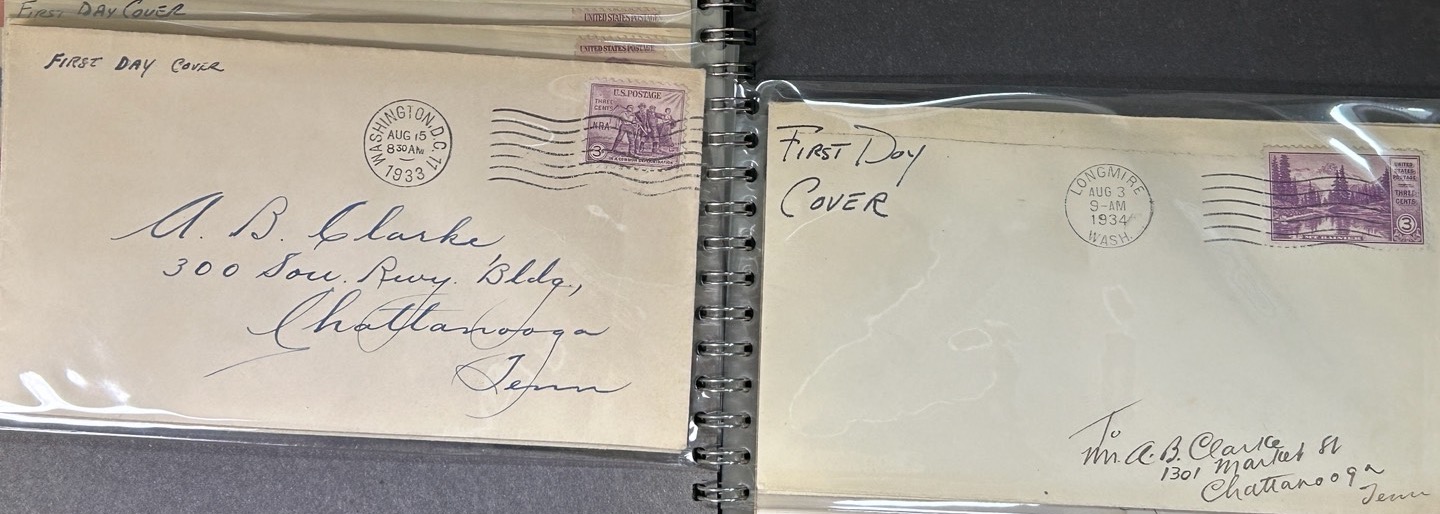 FIRST DAY COVER
UNITED STATES POSTAGE
UNITED STATES POSTAGE
FIRST DAY COVER
WASHINGTON, D.C. 11
AUG 15
8 30 AM
1933
U.S. POSTAGE
THREE
CENTS
NRA
3¢
A. B. Clarke
300 Sou. Rwy. Bldg.,
Chattanooga
Tenn
First Day
Cover
LONGMIRE
AUG 3
9-AM
1934
WASH.
UNITED
STATES
POSTAGE
THREE
CENTS
3
MT. RAINIER
To
Mr. A. B. Clarke
1301 Market St
Chattanooga
Tenn